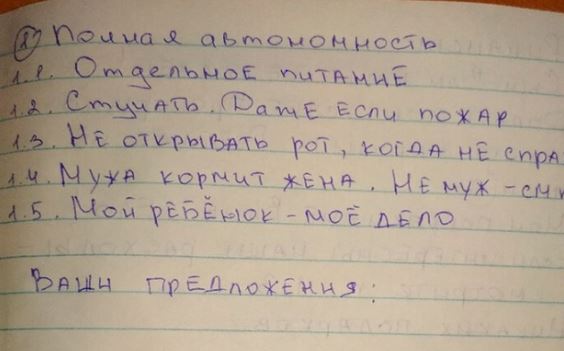 1) Полная автономность
1.1. Отдельное питание
1.2. Стучать. Даже если пожар
1.3. Не открывать рот, когда не спра
1.4. Мужа кормит жена. Не муж - см
1.5. Мой ребёнок - моё дело
Ваши предложения: